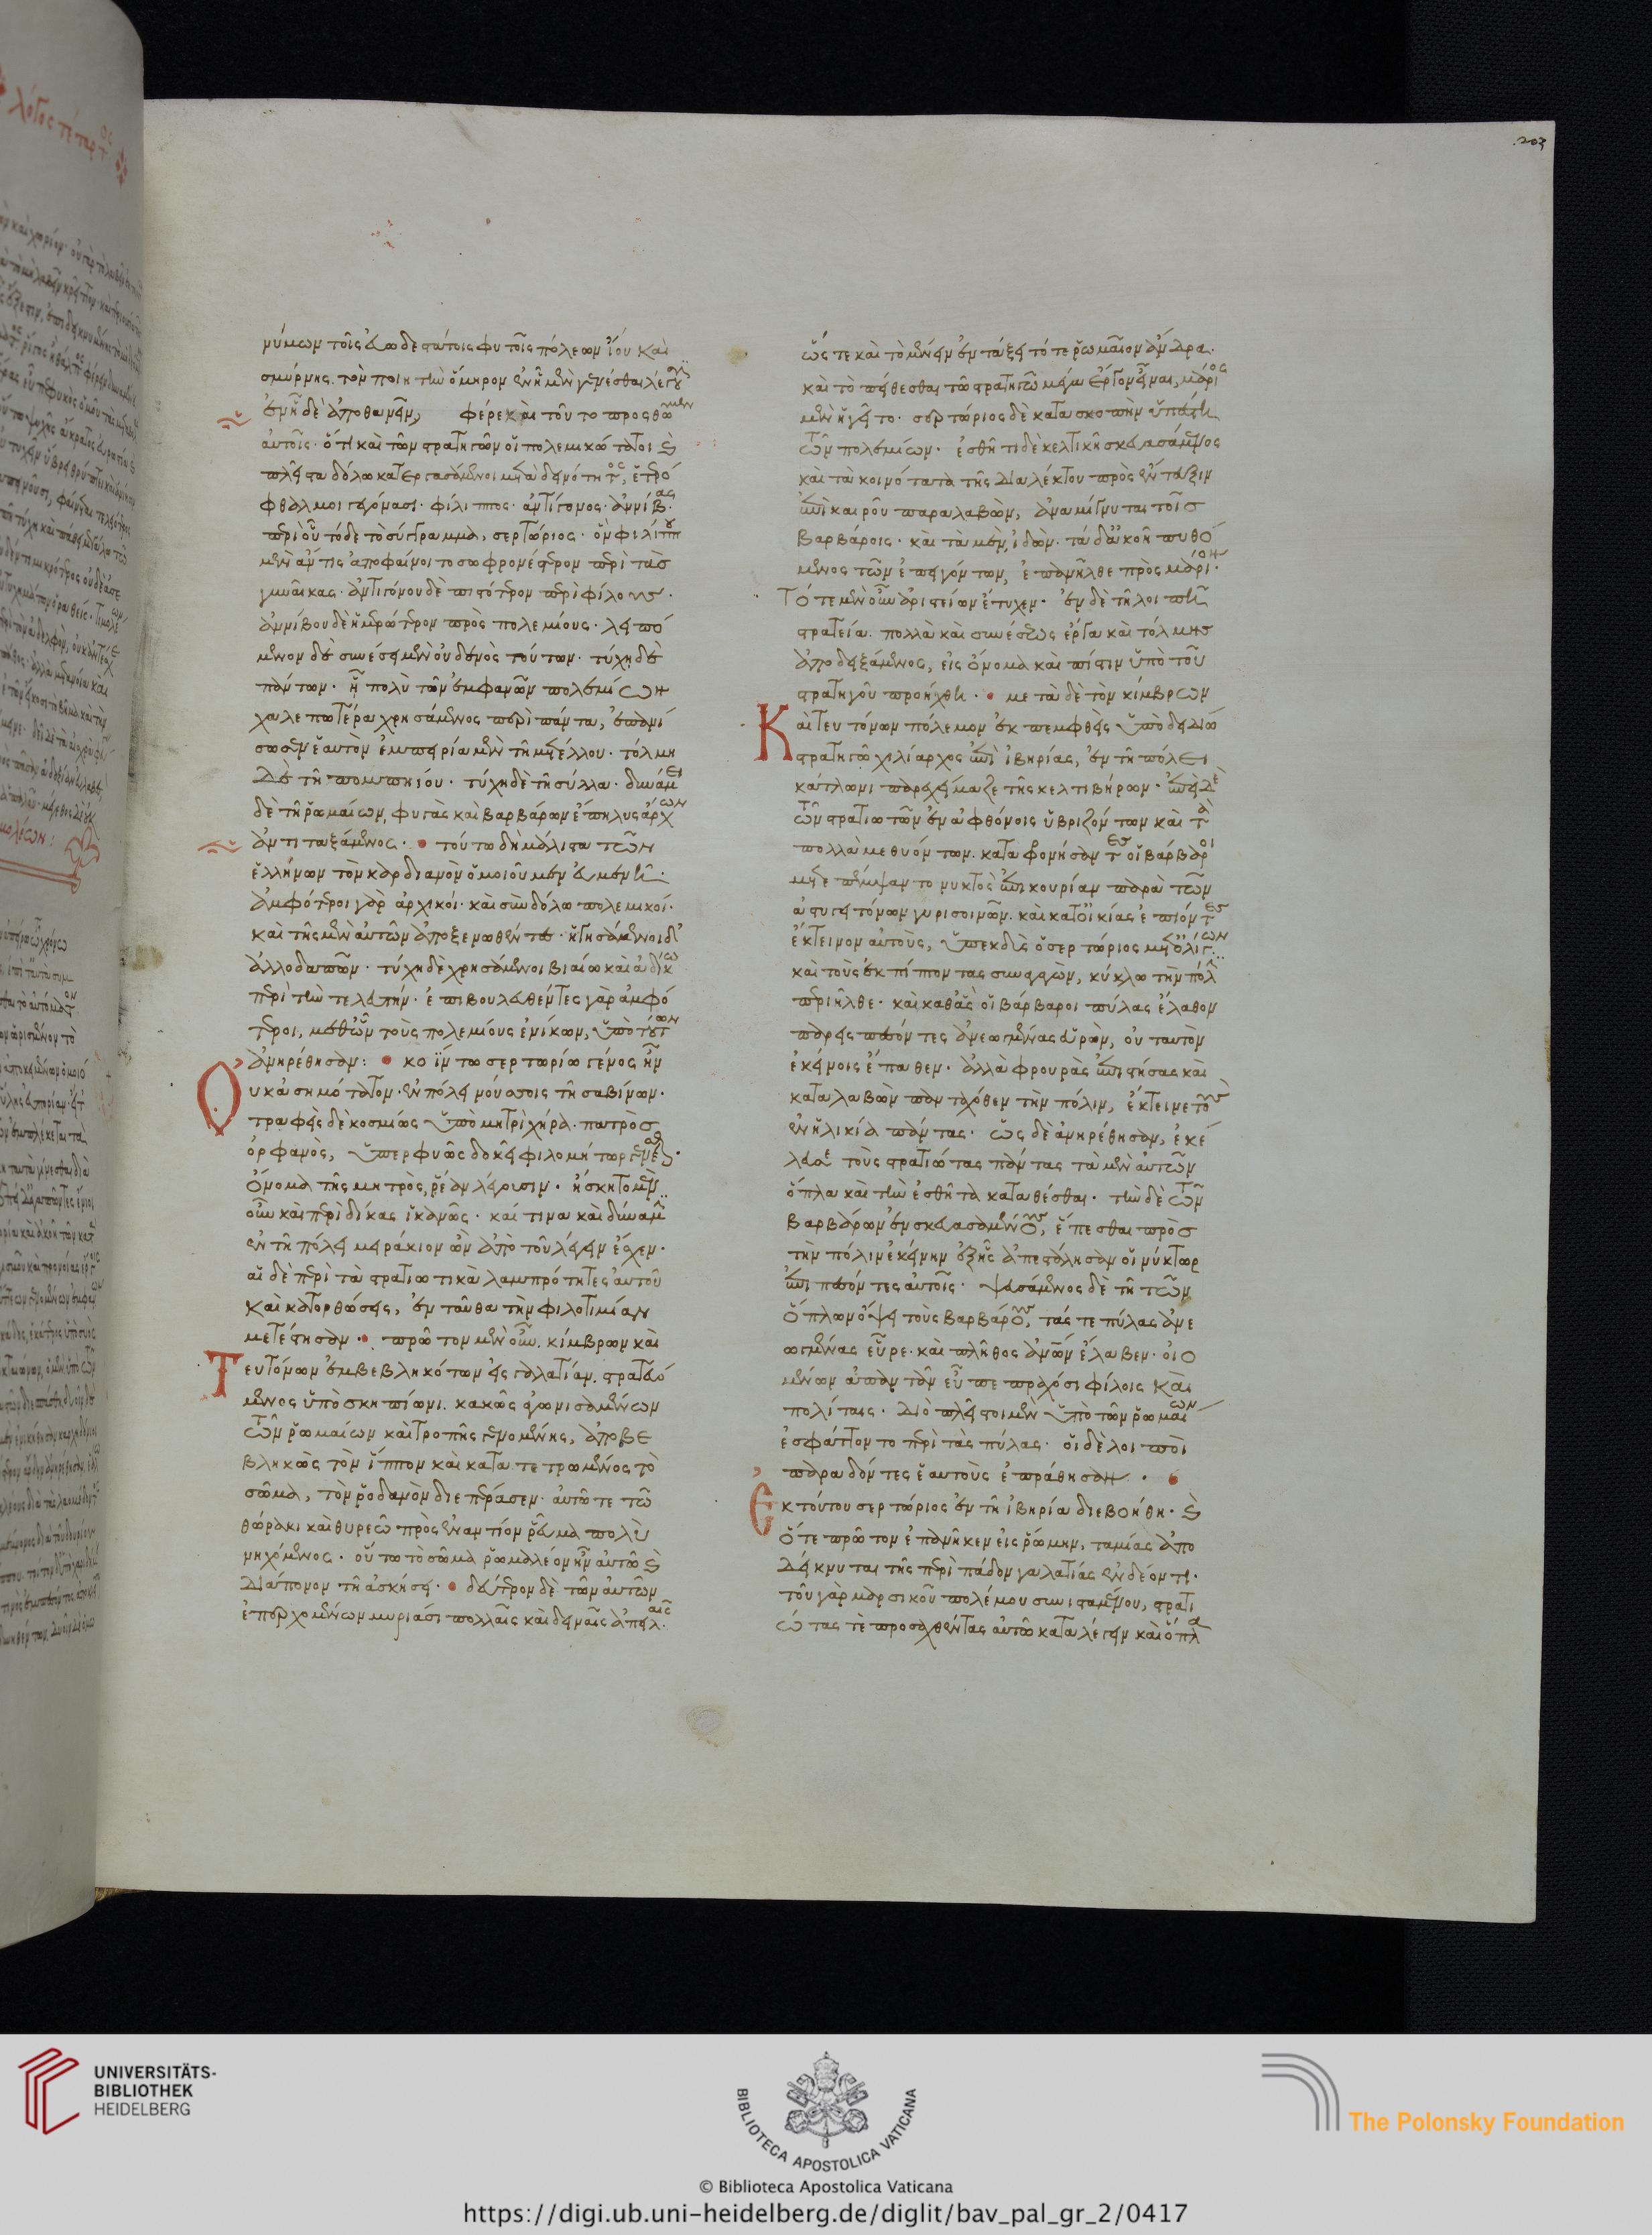 νύμων τοῖς εὐωδεστάτοις φυτοῖς πόλεων ἴου καὶ
σμύρνης. τὸν ποιητὴν ὅμηρον ἐν ᾗ μὲν γενέσθαι λέγουσιν
ἐν ᾗ δὲ ἀποθανεῖν, φέρε καὶ τοῦτο προσθῶμεν
αὐτοῖς. ὅτι καὶ τῶν στρατηγῶν οἱ πολεμικώτατοι καὶ
πλεῖστα δόλω κατεργασάμενοι μετὰ δεινότητος, ἑτερό
φθαλμοι γεγόνασι. φίλιππος. ἀντίγονος. ἀννίβας.
περὶ οὗ τόδε τὸ σύγγραμμα, σερτώριος. ὃν φιλίππου
μὲν ἄν τις ἀποφαίνοι τὸ σωφρονέστερον περὶ τὰς
γυναῖκας. ἀντιγόνου δὲ πιστότερον περὶ φίλους.
ἀννίβου δὲ ἡμερώτερον πρὸς πολεμίους. λειπό
μενον δὲ συνέσει μὲν οὐδενὸς τούτων. τύχη δὲ
πάντων. ᾗ πολὺ τῶν ἐμφανῶν πολεμίων
χαλεπωτέρα χρησάμενος περὶ πάντα, ἐπανί
σωσεν ἑαυτὸν ἐμπειρία μὲν τῇ μετέλλου. τόλμη
δὲ τῇ πομπηίου. τύχη δὲ τῇ σύλλα. δυνάμει
δὲ τῇ ῥωμαίων, φυγὰς καὶ βαρβάρων ἔπηλυς ἄρχων
ἀντιταξάμενος. τούτω δὴ μάλιστα τῶν
ἑλλήνων τὸν καρδιανὸν ὁμοιοῦμεν εὐμενῆ.
ἀμφότεροι γὰρ ἀρχικοὶ. καὶ σὺν δόλω πολεμικοί.
καὶ τῆς μὲν αὐτῶν ἀποξενωθέντες. ἡγησάμενοι δ'
ἀλλοδαπῶν. τύχη δὲ χρησάμενοι βιαίω καὶ ἀδίκω
περὶ τὴν τελευτήν. ἐπιβουλευθέντες γὰρ ἀμφό
τεροι, μεθ' ὧν τοὺς πολεμίους ἐνίκων, ὑπὸ τούτων
ἀνηρέθησαν: κοΐντω σερτωρίω γένος ἦν
Οὐκ ἀσημότατον. ἐν πόλει νούσοις τῇ σαβίνων.
τραφεὶς δὲ κοσμίως ὑπὸ μητρὶ χήρα. πατρὸς
ὀρφανὸς, ὑπερφυῶς δοκεῖ φιλομήτωρ γενέσθαι.
ὄνομα τῆς μητρὸς, ῥέαν λέγουσιν. ἠσκητο μὲν
οὖν καὶ περὶ δίκας ἱκανῶς. καί τινα καὶ δύναμιν
ἐν τῇ πόλει μειράκιον ὢν ἀπὸ τοῦ λέγειν ἔσχεν.
αἱ δὲ περὶ τὰ στρατιωτικὰ λαμπρότητες αὐτοῦ
καὶ κατορθώσεις, ἐνταῦθα τὴν φιλοτιμίαν
μετέστησαν. πρῶτον μὲν οὖν. κίμβρων καὶ
Τευτόνων ἐμβεβληκότων εἰς γαλατίαν. στρατευό
μενος ὑπὸ σκηπίωνι. κακῶς ἀγωνισαμένων
τῶν ῥωμαίων καὶ τροπῆς γενομένης, ἀποβε
βληκὼς τὸν ἵππον καὶ κατατετρωμένος τὸ
σῶμα, τὸν ῥοδανὸν διεπέρασεν. αὐτῶ τε τῶ
θώρακι καὶ θυρεῶ πρὸς ἐναντίον ῥεῦμα πολὺ
νηχόμενος. οὕτω τὸ σῶμα ῥωμαλέον ἦν αὐτῶ καὶ
διάπονον τῇ ἀσκήσει. δεύτερον δὲ τῶν αὐτῶν
ἐπερχομένων μυριάσι πολλαῖς καὶ δειναῖς ἀπειλαῖς.
ὥς τε καὶ τὸ μένειν ἐν τάξει τότε ῥωμαῖον ἄνδρα.
καὶ τὸ πείθεσθαι τῶ στρατηγῶ μέγα ἔργον εἶναι, μάριος
μὲν ἡγεῖτο. σερτώριος δὲ κατασκοπὴν ὑπέστη
τῶν πολεμίων. ἐσθῆτι δὲ κελτικῇ σκευασάμενος
καὶ τὰ κοινότατα τῆς διαλέκτου πρὸς ἔντευξιν
ἐπὶ καιροῦ παραλαβὼν, ἀναμίγνυται τοῖς
βαρβάροις. καὶ τὰ μὲν, ἰδὼν. τὰ δ' ἀκοῇ πυθό
μενος τῶν ἐπειγόντων, ἐπανῆλθε πρὸς μάριον.
Τότε μὲν οὖν ἀριστείων ἔτυχεν. ἐν δὲ τῇ λοιπῇ
στρατεία. πολλὰ καὶ συνέσεως ἔργα καὶ τόλμης
ἀποδειξάμενος, εἰς ὄνομα καὶ πίστιν ὑπὸ τοῦ
στρατηγοῦ προήχθη. μετὰ δὲ τὸν κίμβρων
Καὶ τευτόνων πόλεμον ἐκπεμφθεὶς ὑπὸ δειδίω
στρατηγῶ χιλίαρχος ἐπὶ ἰβηρίας, ἐν τῇ πόλει
κάτλωνι παρεχείμαζε τῆς κελτιβήρων. ἐπεὶ δὲ
τῶν στρατιωτῶν ἐν ἀφθόνοις ὑβριζόντων καὶ τὰ
πολλὰ μεθυόντων. καταφρονήσαντες οἱ βάρβαροι
μετεπέμψαντο νυκτὸς ἐπικουρίαν παρὰ τῶν
ἀστυγειτόνων γυρισοινῶν. καὶ κατ' οἰκίας ἐπιόντες
ἔκτεινον αὐτοὺς, ὑπεκδὺς ὁ σερτώριος μετ' ὀλίγων
καὶ τοὺς ἐκπίπτοντας συναγαγὼν, κύκλω τὴν πόλιν
περιῆλθε. καὶ καθ' ἃς οἱ βάρβαροι πύλας ἔλαθον
παρεισπεσόντες ἀνεωγμένας εὑρὼν, οὐ ταυτὸν
ἐκείνοις ἔπαθεν. ἀλλὰ φρουρὰς ἐπιστήσας καὶ
καταλαβὼν πανταχόθεν τὴν πόλιν, ἔκτεινε τοὺς
ἐν ἡλικία πάντας. ὡς δὲ ἀνηρέθησαν, ἐκέ
λευσε τοὺς στρατιώτας πάντας τὰ μὲν αὑτῶν
ὅπλα καὶ τὴν ἐσθῆτα καταθέσθαι. τὴν δὲ τῶν
βαρβάρων ἐνσκευασαμένους, ἕπεσθαι πρὸς
τὴν πόλιν ἐκείνην ἐξ ἧς ἀπεστάλησαν οἱ νύκτωρ
ἐπιπεσόντες αὐτοῖς. ψευσάμενος δὲ τῇ τῶν
ὅπλων ὄψει τοὺς βαρβάρους, τάς τε πύλας ἀνε
ωγμένας εὗρε. καὶ πλῆθος ἀνθρώπων ἔλαβεν. οἰο
μένων ἀπαντᾶν εὖ πεπραχόσι φίλοις καὶ
πολίταις. διὸ πλεῖστοι μὲν ὑπὸ τῶν ῥωμαίων
ἐσφάττοντο περὶ τὰς πύλας. οἱ δὲ λοιποὶ
παραδόντες ἑαυτοὺς ἐπράθησαν.
Ἐκ τούτου σερτώριος ἐν τῇ ἰβηρία διεβοήθη. καὶ
ὅτε πρῶτον ἐπανῆκεν εἰς ῥώμην, ταμίας ἀπο
δείκνυται τῆς περὶ πάδον γαλατίας ἐν δέοντι.
τοῦ γὰρ μαρσικοῦ πολέμου συνισταμένου, στρατι
ώτας τε προσαχθέντας αὐτῶ καταλέγειν καὶ ὅπλα
203
UNIVERSITÄTS-
BIBLIOTHEK
HEIDELBERG
BIBLIOTECA APOSTOLICA VATICANA
The Polonsky Foundation
© Biblioteca Apostolica Vaticana
https://digi.ub.uni-heidelberg.de/diglit/bav_pal_gr_2/0417